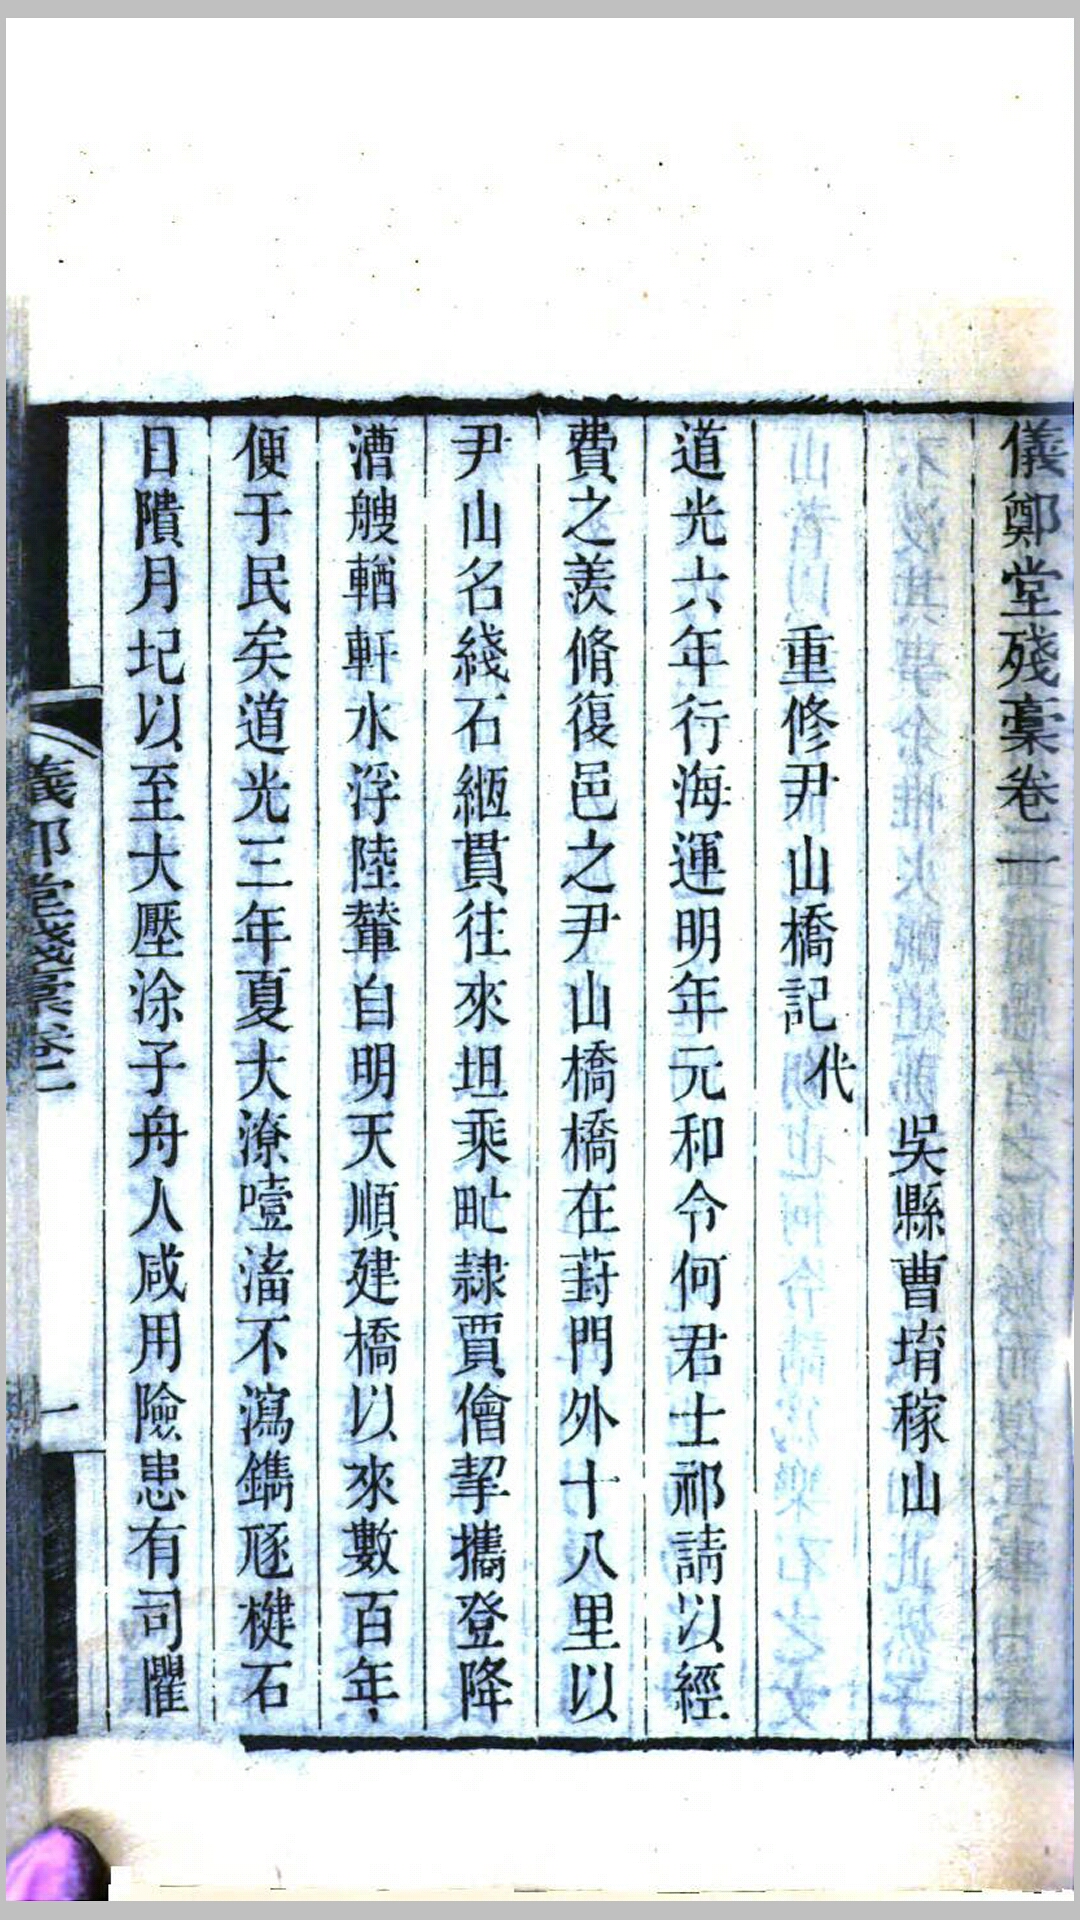 儀鄭堂殘稾卷二
吳縣曹堉稼山
重修尹山橋記代
道光六年行海運明年元和令何君士祁請以經
費之羨脩復邑之尹山橋橋在葑門外十八里以
尹山名綫石絙貫往來坦乘甿隷賈儈挈攜登降
漕艘輶軒水浮陸輦自明天順建橋以來數百年
便于民矣道光三年夏大潦噎潏不瀉鐫豗楗石
日隤月圮以至大壓涂子舟人咸用險患有司懼
儀鄭堂殘稾卷二
一